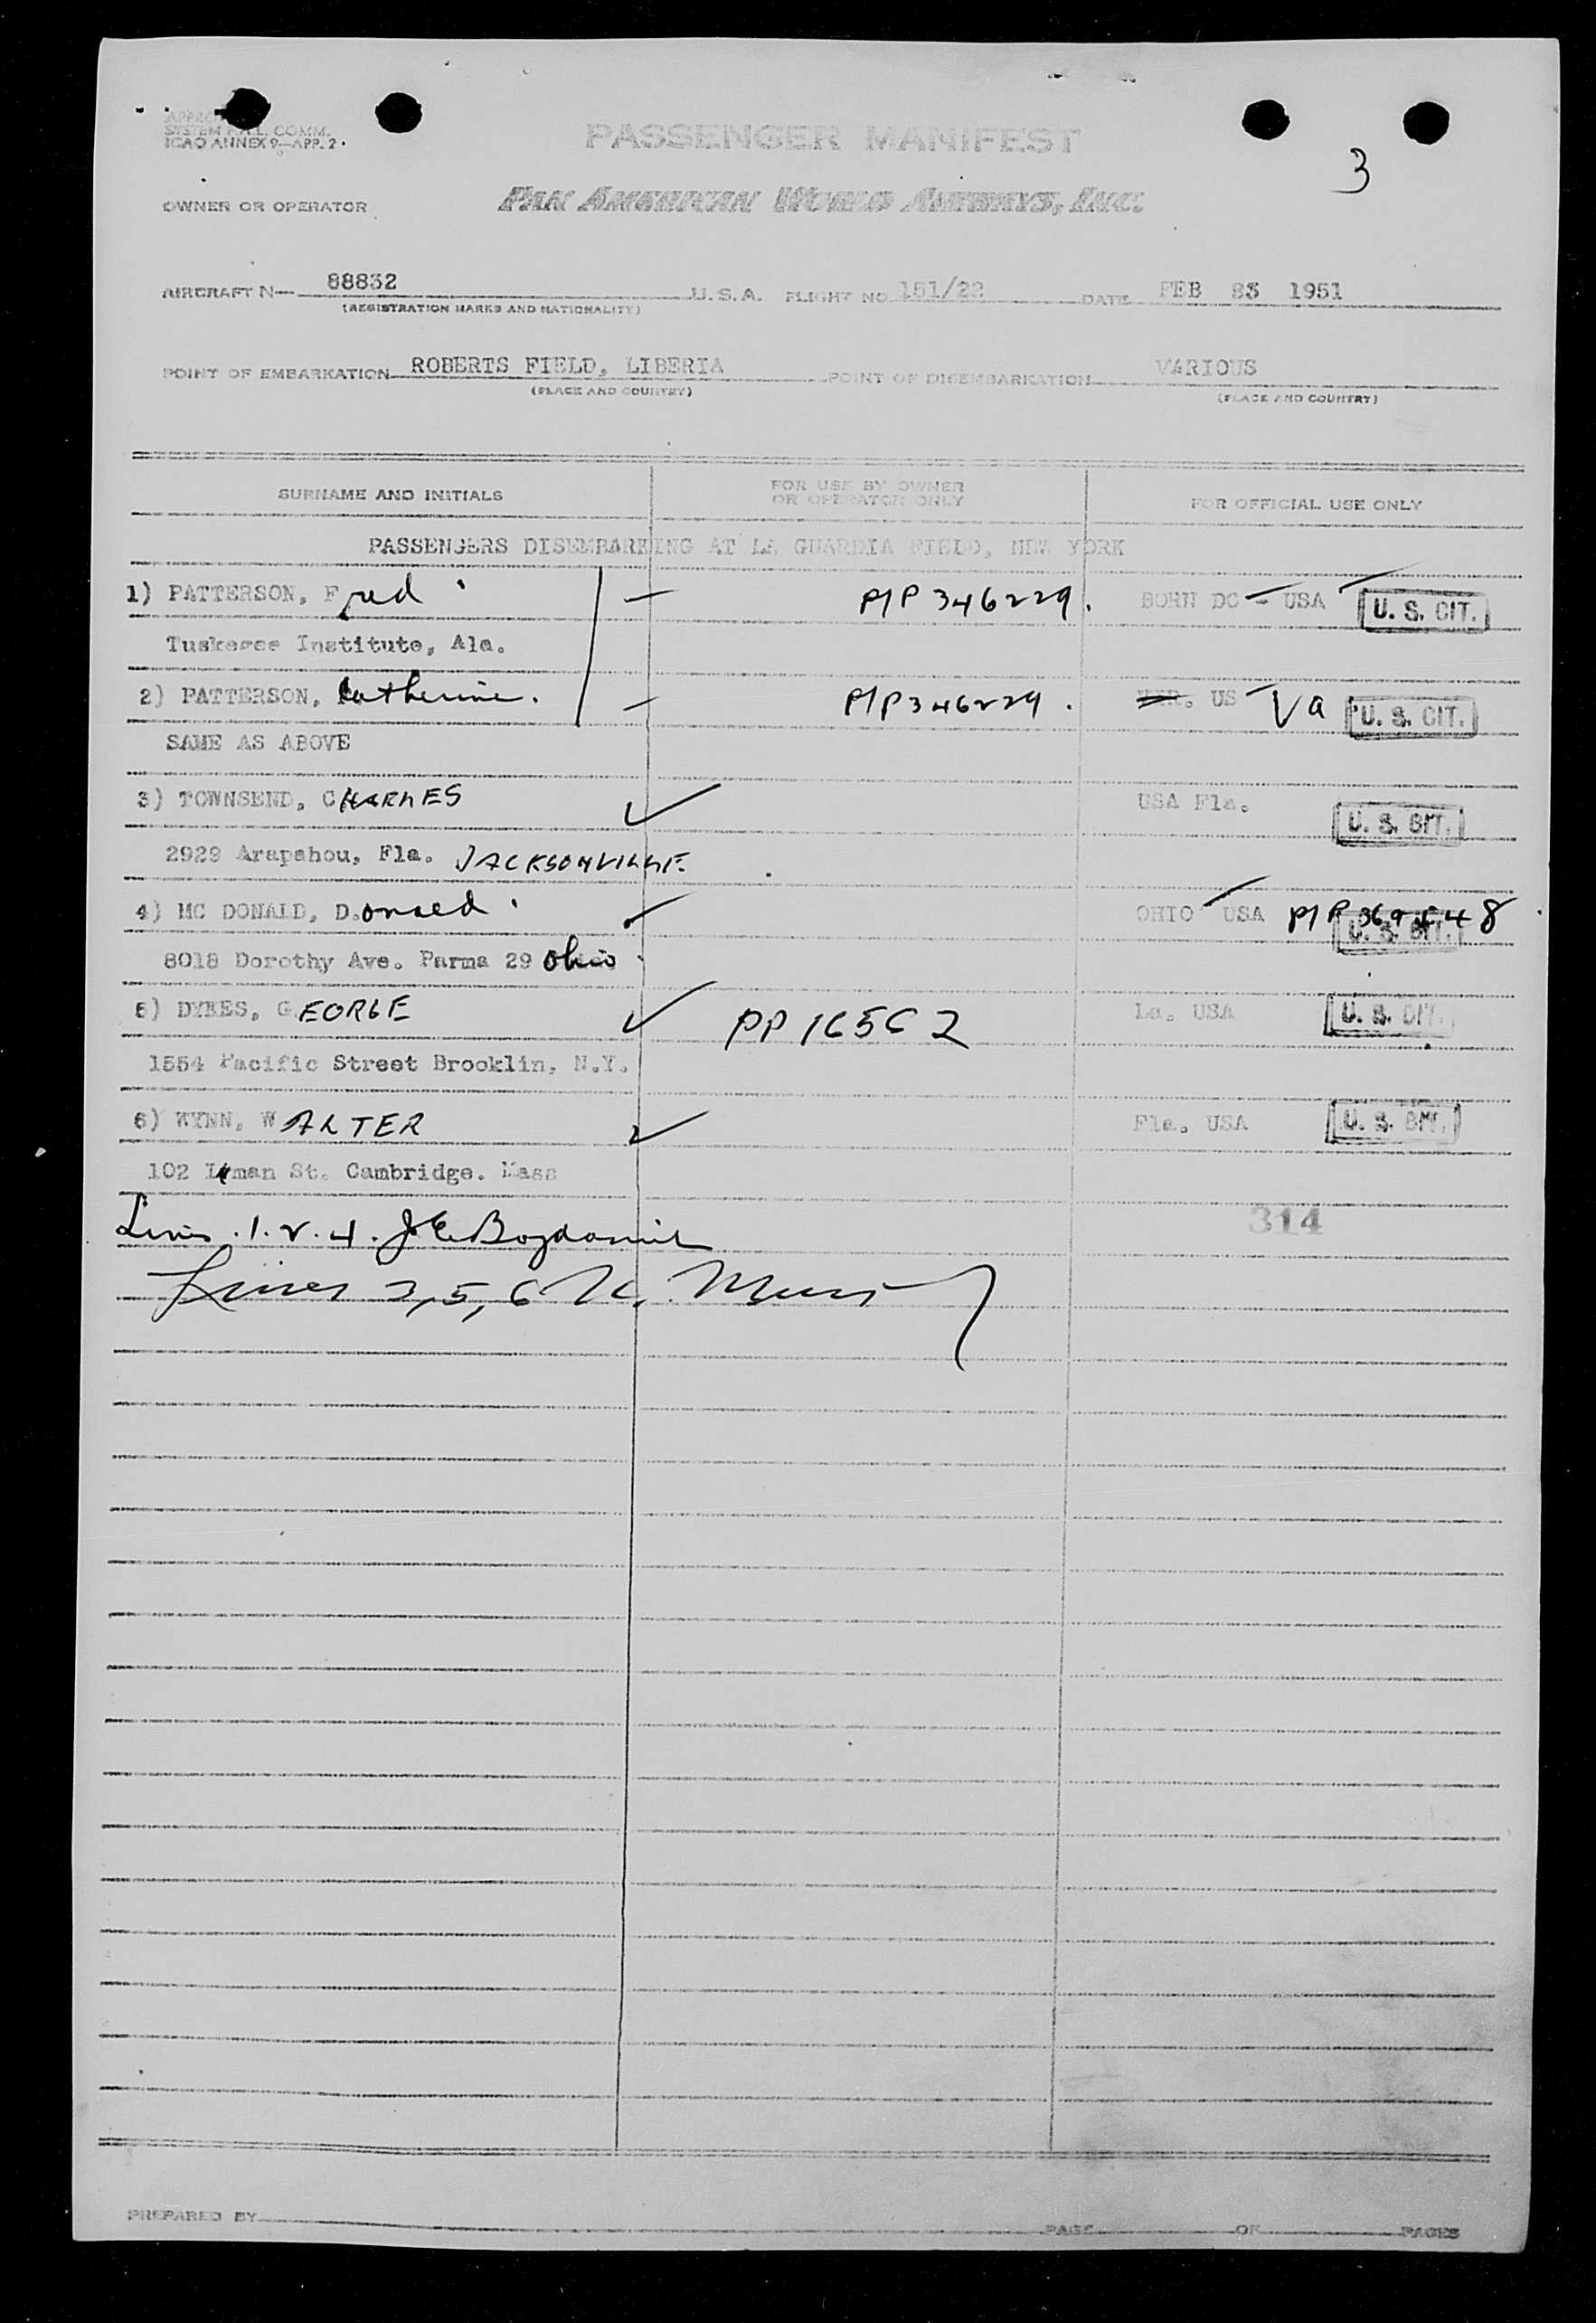 SYSTEM F.A.L. COMM.
ICAO ANNEX 9—APP. 2.
PASSENGER MANIFEST
3
OWNER OR OPERATOR PAN AMERICAN WORLD AIRWAYS, INC.
AIRCRAFT N— 88832 U.S.A. FLIGHT NO 151/22 DATE FEB 1951
(REGISTRATION MARKS AND NATIONALITY)
POINT OF EMBARKATION ROBERTS FIELD, LIBERIA POINT OF DISEMBARKATION VARIOUS
(PLACE AND COUNTRY) (PLACE AND COUNTRY)
SURNAME AND INITIALS FOR USE BY OWNER OR OPERATOR ONLY FOR OFFICIAL USE ONLY
PASSENGERS DISEMBARKING AT LA GUARDIA FIELD, NEW YORK
1) PATTERSON, Fred P/P 346229. BORN DC - USA U. S. CIT.
Tuskegee Institute, Ala.
2) PATTERSON, Catherine. P/P 346229. US Va U. S. CIT.
SAME AS ABOVE
3) TOWNSEND, CHARLES USA Fla. U. S. CIT.
2929 Arapahou, Fla. JACKSONVILLE.
4) MC DONALD, Donald OHIO USA P/P U. S. CIT.
8018 Dorothy Ave. Parma 29 Ohio
5) DYKES, GEORGE PP La. USA U. S. CIT.
1554 Pacific Street Brooklin, N.Y.
6) WYNN, WALTER Fla. USA U. S. CIT.
102 St. Cambridge. Mass
314
Lines 1.2.4.
Lines 3,5,6
PREPARED BY PAGE OF PAGES